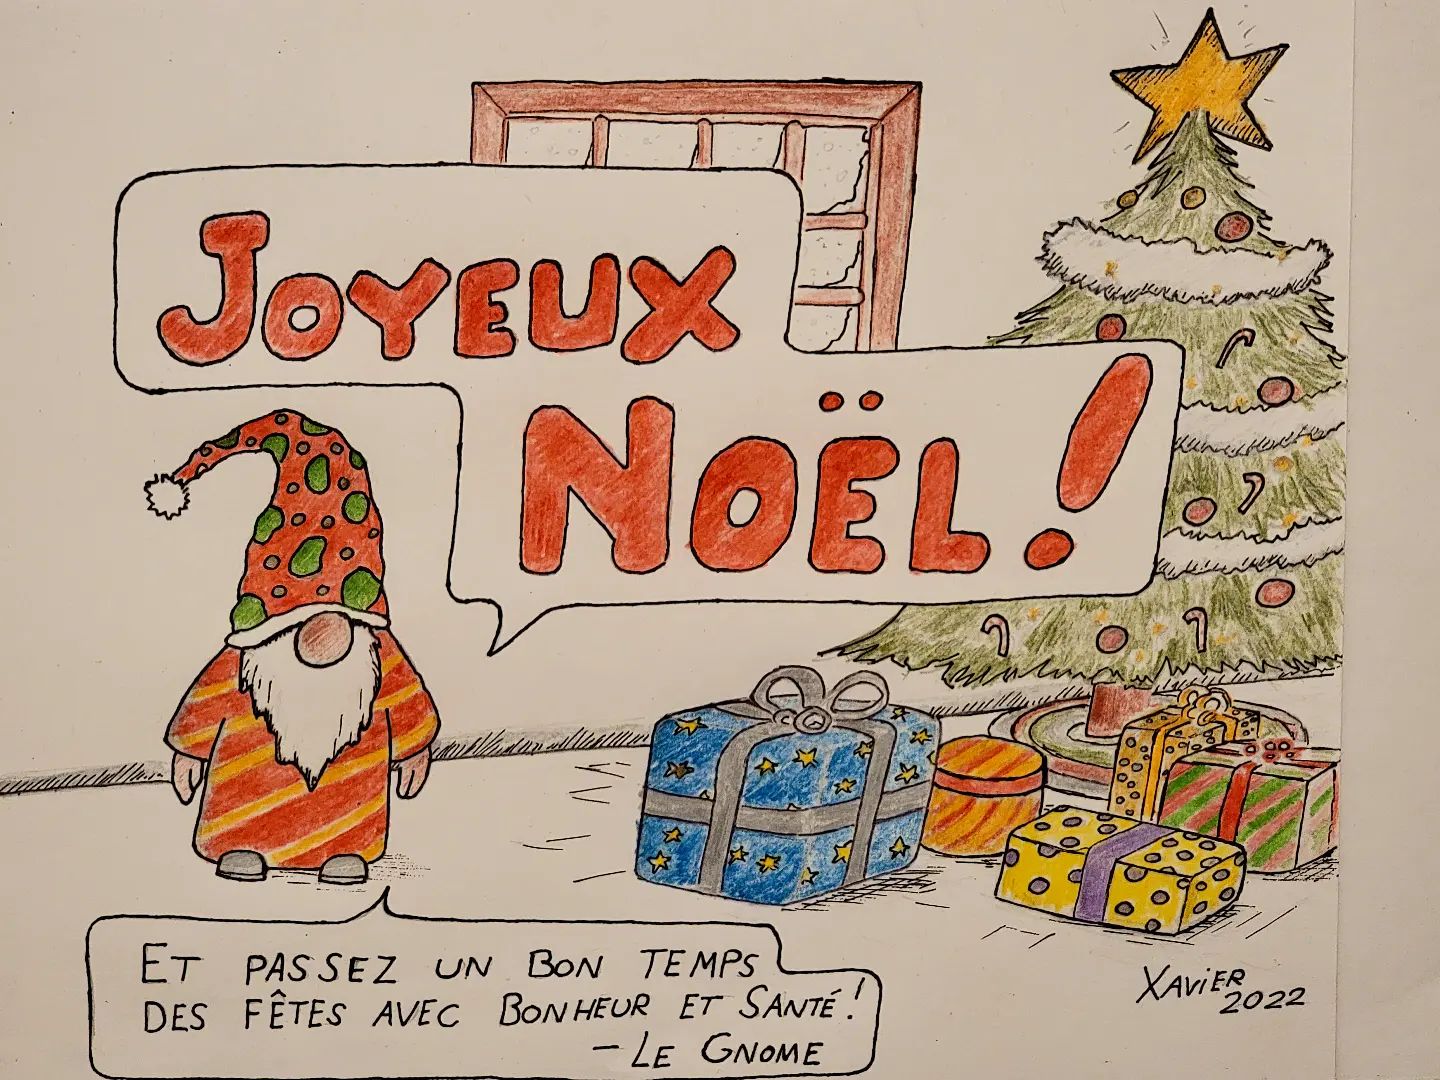 JOYEUX
NOËL!
ET PASSEZ UN BON TEMPS
DES FÊTES AVEC BONHEUR ET SANTÉ!
- LE GNOME
XAViER
2022